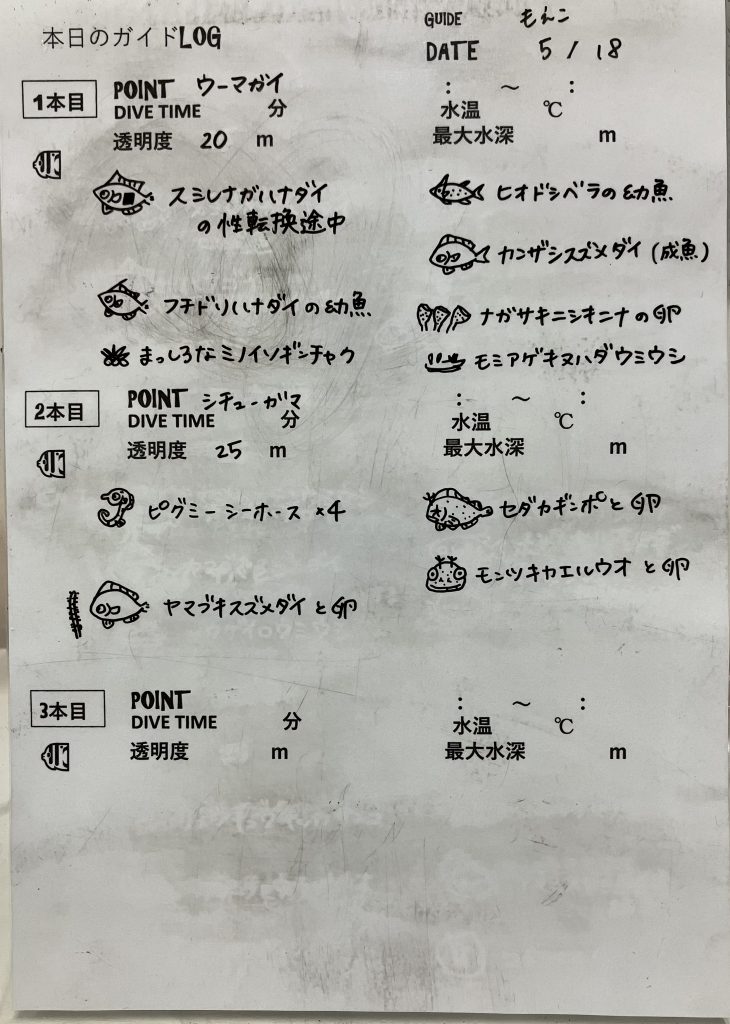 本日のガイドLOG
GUIDE もんこ
DATE 5 / 18
1本目
POINT ウーマガイ
: ~ :
DIVE TIME 分
水温 ℃
透明度 20 m
最大水深 m
スミレナガハナダイ
の性転換途中
ヒオドシベラの幼魚
カンザシスズメダイ (成魚)
フチドリハナダイの幼魚
ナガサキニシキニナの卵
まっしろなミノイソギンチャク
モミアゲキヌハダウミウシ
2本目
POINT シチューガマ
: ~ :
DIVE TIME 分
水温 ℃
透明度 25 m
最大水深 m
ピグミーシーホース ×4
セダカギンポと卵
モンツキカエルウオと卵
ヤマブキスズメダイと卵
3本目
POINT
: ~ :
DIVE TIME 分
水温 ℃
透明度 m
最大水深 m